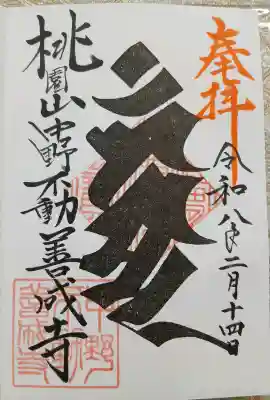 奉拝
令和八年二月十四日
桃園山中野不動善成寺